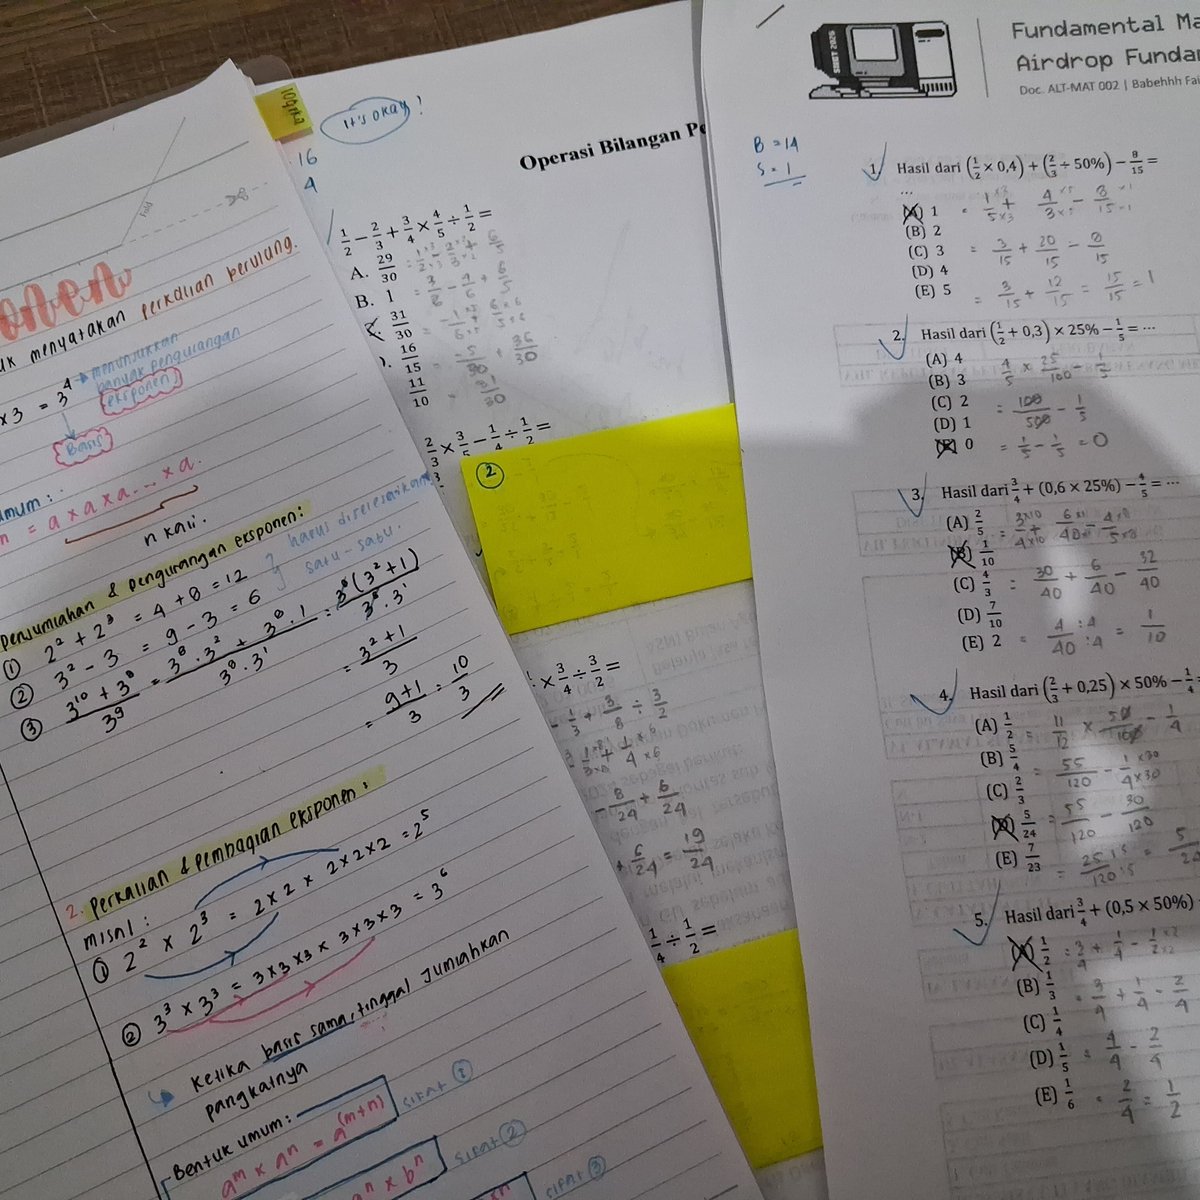 Fold
onen
uk menyatakan perkalian berulang.
×3 = 3⁴ → menunjukkan
banyak pengurangan
eksponen
Basis
umum:
n = a × a × a ... × a.
n kali.
Penjumlahan & pengurangan eksponen:
① 2² + 2³ = 4 + 8 = 12
② 3² - 3 = 9 - 3 = 6
harus diselesaikan
satu-satu.
③ (3¹⁰ + 3⁸)/3⁹ = (3⁸ · 3² + 3⁸ · 1)/(3⁸ · 3¹) = 3⁸(3² + 1)/(3⁸ · 3¹)
= (3² + 1)/3
= (9+1)/3 = 10/3
2. Perkalian & Pembagian eksponen:
misal :
① 2² × 2³ = 2 × 2 × 2 × 2 × 2 = 2⁵
② 3³ × 3³ = 3 × 3 × 3 × 3 × 3 × 3 = 3⁶
↳ Ketika basis sama, tinggal Jumlahkan
pangkatnya
Bentuk umum:
aᵐ × aⁿ = a⁽ᵐ⁺ⁿ⁾ sifat ①
ⁿ × bⁿ sifat ②
sifat ③
It's okay!
16
4
Operasi Bilangan Pe
1/2 − 2/3 + 3/4 × 4/5 ÷ 1/2 =
A. 29/30
B. 1
31/30
16/15
11/10
36/30
2/3 × 3/5 − 1/4 ÷ 1/2 =
②
× 3/4 ÷ 3/2 =
1/3 + 3/8 ÷ 3/2
8/24 + 6/24
+ 6/24 = 19/24
1/4 ÷ 1/2 =
SNBT 2026
Fundamental Ma
Airdrop Fundam
Doc. ALT-MAT 002 | Babehhh Fai
B = 14
S = 1
1. Hasil dari (1/2 × 0,4) + (2/3 ÷ 50%) − 8/15 =
...
(A) 1
(B) 2
(C) 3
(D) 4
(E) 5
= 1×3/5×3 + 4×5/3×5 - 8×1/15×1
= 3/15 + 20/15 - 8/15
= 3/15 + 12/15 = 15/15 = 1
2. Hasil dari (1/2 + 0,3) × 25% − 1/5 = ⋯
(A) 4
(B) 3
(C) 2
(D) 1
(E) 0
4/5 × 25/100 - 1/5
= 100/500 - 1/5
= 1/5 - 1/5 = 0
3. Hasil dari 3/4 + (0,6 × 25%) − 4/5 = ⋯
(A) 2/5
(B) 1/10
(C) 4/3
(D) 7/10
(E) 2
3×10/4×10 + 6×1/40×1 - 4×8/5×8
= 30/40 + 6/40 - 32/40
= 4:4/40:4 = 1/10
4. Hasil dari (2/3 + 0,25) × 50% − 1/4 =
(A) 1/2
(B) 5/4
(C) 2/3
(D) 5/24
(E) 7/23
= 11/12 × 50/100 - 1/4
= 55/120 - 1×30/4×30
= 55/120 - 30/120
= 25:5/120:5 = 5/24
5. Hasil dari 3/4 + (0,5 × 50%)
(A) 1/2
(B) 1/3
(C) 1/4
(D) 1/5
(E) 1/6
= 3/4 + 1/4 - 1×2/2×2
= 3/4 + 1/4 - 2/4
= 4/4 - 2/4
= 2/4 = 1/2